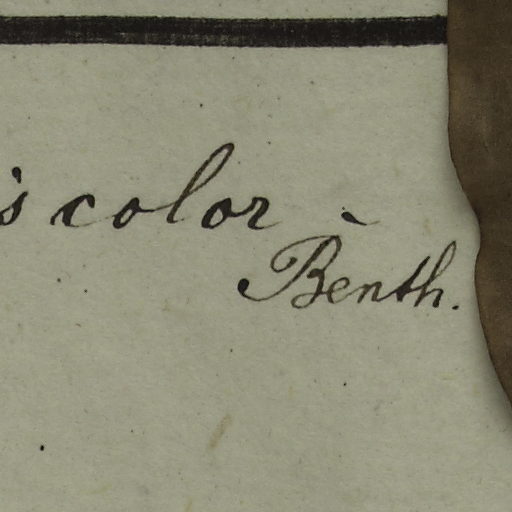 is color -
Benth.